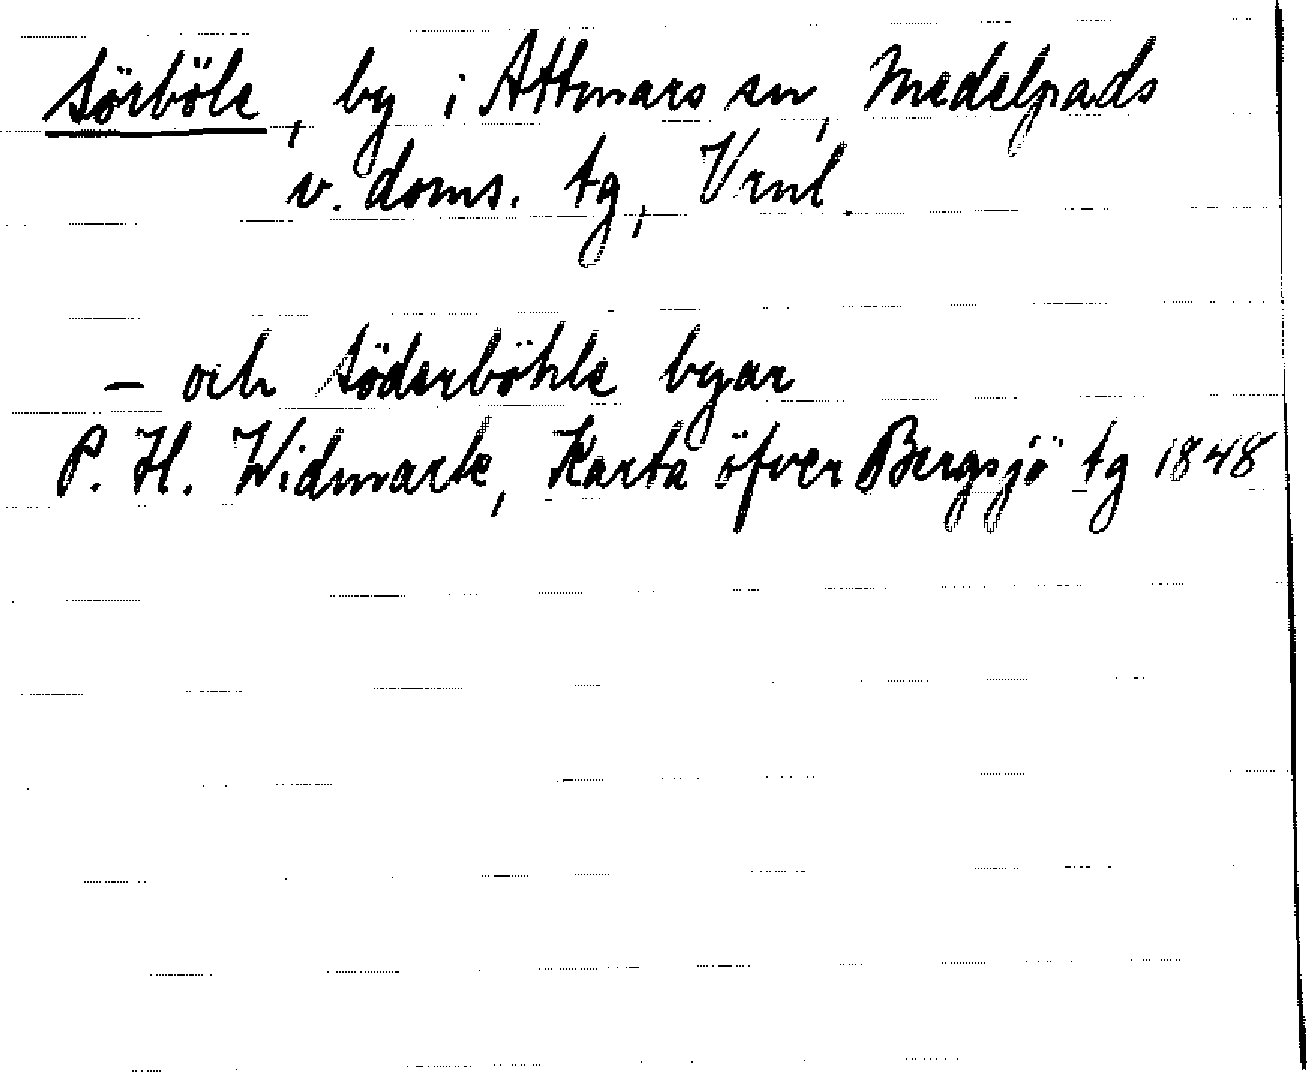 Sörböle, by i Attmars sn, Medelpads
v. doms. tg, Vrnl.
- och Söderböhle byar
P. H. Widmark, Karta öfver Bergsjö tg 1848